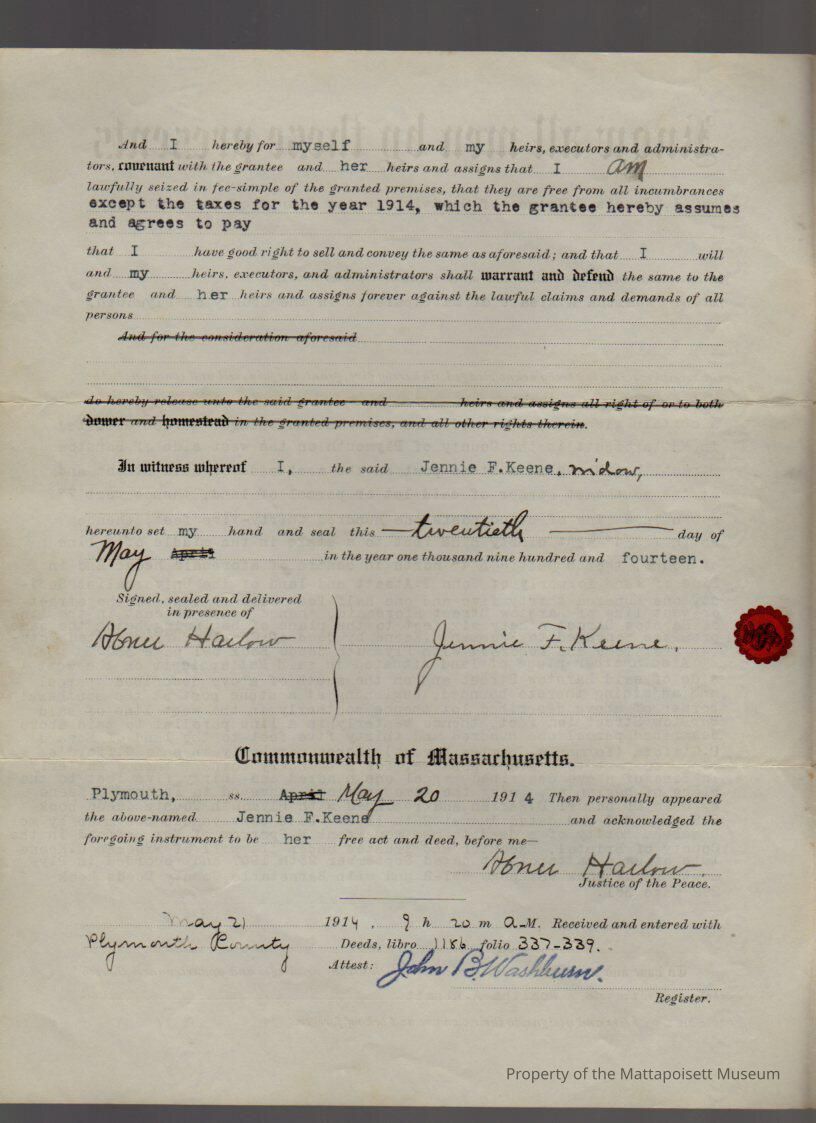 And I hereby for myself and my heirs, executors and administra-
tors, covenant with the grantee and her heirs and assigns that I am
lawfully seized in fee-simple of the granted premises, that they are free from all incumbrances
except the taxes for the year 1914, which the grantee hereby assumes
and agrees to pay
that I have good right to sell and convey the same as aforesaid; and that I will
and my heirs, executors, and administrators shall warrant and defend the same to the
grantee and her heirs and assigns forever against the lawful claims and demands of all
persons
And for the consideration aforesaid
do hereby release unto the said grantee and heirs and assigns all right of or to both
dower and homestead in the granted premises, and all other rights therein.
In witness whereof I, the said Jennie F.Keene, widow,
hereunto set my hand and seal this twentieth day of
May April in the year one thousand nine hundred and fourteen.
Signed, sealed and delivered
in presence of
Abner Harlow Jennie F. Keene.
Commonwealth of Massachusetts.
Plymouth, ss. April May 20 1914 Then personally appeared
the above-named Jennie F.Keene and acknowledged the
foregoing instrument to be her free act and deed, before me—
Abner Harlow.
Justice of the Peace.
May 21 1914. 9 h 20 m A.M. Received and entered with
Plymouth County Deeds, libro 1186 folio 337-339.
Attest: John B. Washburn.
Register.
Property of the Mattapoisett Museum